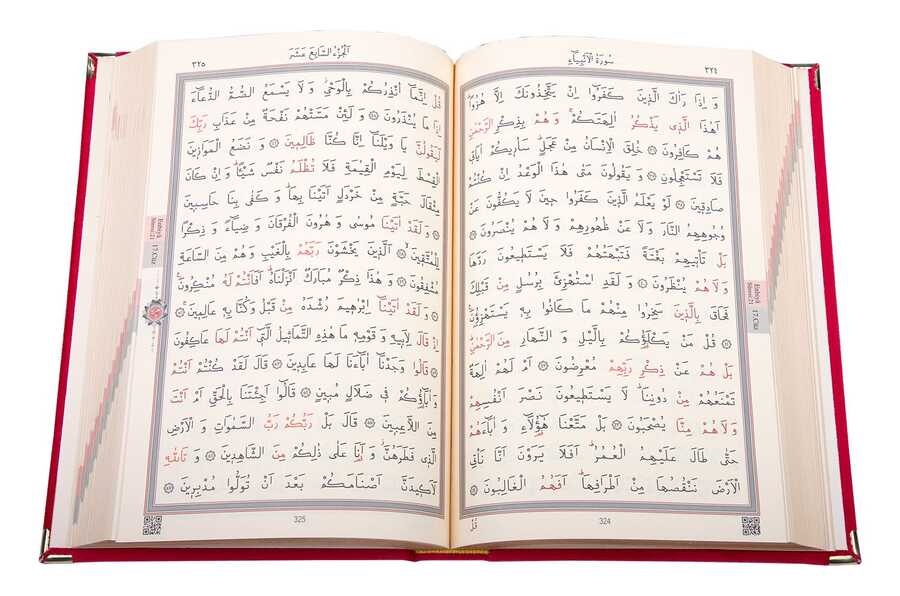 سورة الأنبياء
٣٢٤
و اذا راك الذين كفروا ان يتخذونك الا هزوا
اهذا الذي يذكر الهتكم و هم بذكر الرحمن
هم كافرون ۝ خلق الانسان من عجل ساريكم اياتي
فلا تستعجلون ۝ و يقولون متى هذا الوعد ان كنتم
صادقين ۝ لو يعلم الذين كفروا حين لا يكفون عن
وجوههم النار ولا عن ظهورهم و لا هم ينصرون ۝
بل تاتيهم بغتة فتبهتهم فلا يستطيعون ردها
و لا هم ينظرون ۝ و لقد استهزئ برسل من قبلك
فحاق بالذين سخروا منهم ما كانوا به يستهزؤن
۝ قل من يكلؤكم باليل و النهار من الرحمن
بل هم عن ذكر ربهم معرضون ۝ ام لهم الهة
تمنعهم من دوننا لا يستطيعون نصر انفسهم
و لا هم منا يصحبون ۝ بل متعنا هؤلاء و اباءهم
حتى طال عليهم العمر افلا يرون انا ناتي
الارض ننقصها من اطرافها افهم الغالبون ۝
قل
324
Enbiyâ
Sûresi:21
17.Cüz
الجزء السابع عشر
٣٢٥
قل انما انذركم بالوحي و لا يسمع الصم الدعاء
اذا ما ينذرون ۝ و لئن مستهم نفحة من عذاب ربك
ليقولن يا ويلنا انا كنا ظالمين ۝ و نضع الموازين
القسط ليوم القيمة فلا تظلم نفس شيئا و ان كان
مثقال حبة من خردل اتينا بها و كفى بنا حاسبين
۝ و لقد اتينا موسى و هرون الفرقان و ضياء و ذكرا
للمتقين ۝ الذين يخشون ربهم بالغيب و هم من الساعة
مشفقون ۝ و هذا ذكر مبارك انزلناه افانتم له منكرون
۝ و لقد اتينا ابرهيم رشده من قبل و كنا به عالمين ۝
اذ قال لابيه و قومه ما هذه التماثيل التي انتم لها عاكفون
۝ قالوا وجدنا اباءنا لها عابدين ۝ قال لقد كنتم انتم
و اباؤكم في ضلال مبين ۝ قالوا اجئتنا بالحق ام انت
من اللاعبين ۝ قال بل ربكم رب السموات و الارض
الذي فطرهن و انا على ذلكم من الشاهدين ۝ و تالله
لاكيدن اصنامكم بعد ان تولوا مدبرين ۝
325
Enbiyâ
Sûresi:21
17.Cüz